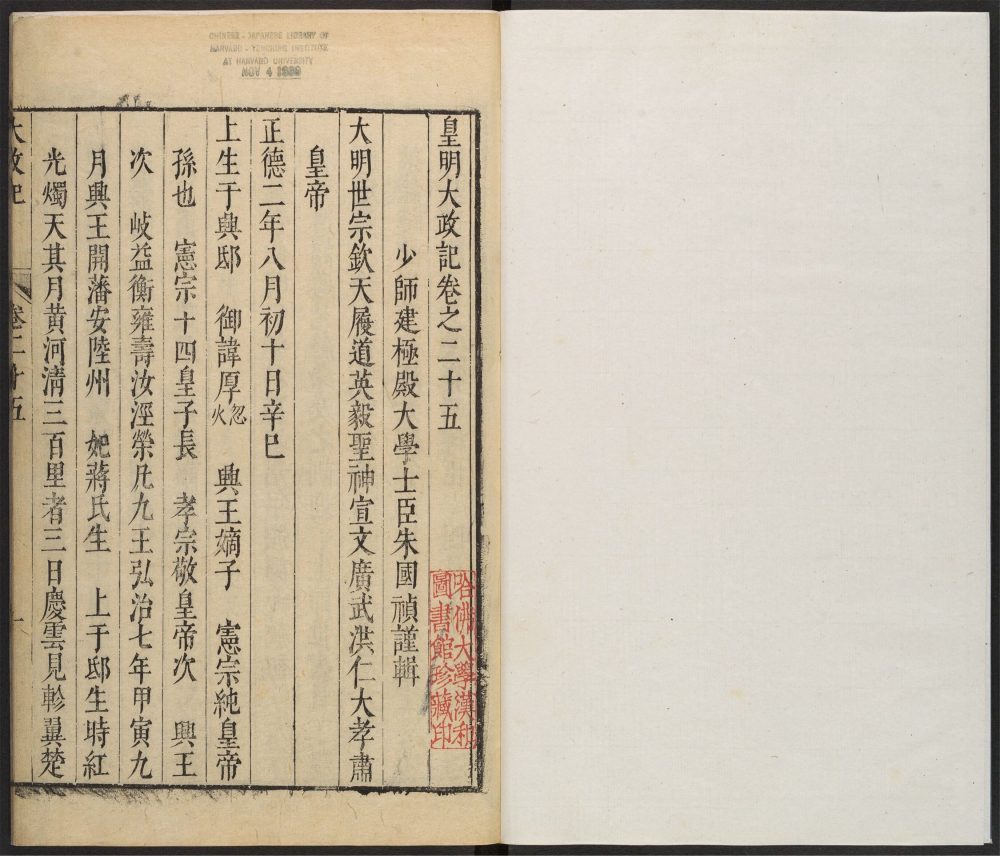 CHINESE - JAPANESE LIBRARY OF
HARVARD - YENCHING INSTITUTE
AT HARVARD UNIVERSITY
NOV 4 1939
皇明大政記卷之二十五
少師建極殿大學士臣朱國禎謹輯
大明世宗欽天履道英毅聖神宣文廣武洪仁大孝肅
皇帝
正德二年八月初十日辛巳
上生于興邸 御諱厚 忽火 興王嫡子 憲宗純皇帝
孫也 憲宗十四皇子長 孝宗敬皇帝次 興王
次 岐益衡雍壽汝涇榮凡九王弘治七年甲寅九
月興王開藩安陸州 妃蔣氏生 上于邸生時紅
光燭天其月黃河清三百里者三日慶雲見軫翼楚
大政記 卷二十五 一
哈佛大學漢和
圖書館珍藏印